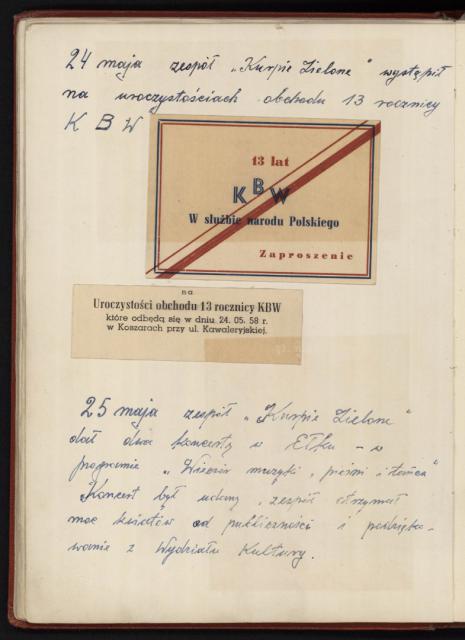 24 maja zespół „Kurpie Zielone" wystąpił
na uroczystościach obchodu 13 rocznicy
K B W
13 lat
KBW
W służbie narodu Polskiego
Zaproszenie
na
Uroczystości obchodu 13 rocznicy KBW
które odbędą się w dniu 24. 05. 58 r.
w Koszarach przy ul. Kawaleryjskiej.
25 maja zespół „Kurpie Zielone"
dał dwa koncerty w Ełku – w
programie „Wieczór muzyki, pieśni i tańca"
Koncert był udany, zespół otrzymał
moc kwiatów od publiczności i podzięko-
wanie z Wydziału Kultury.